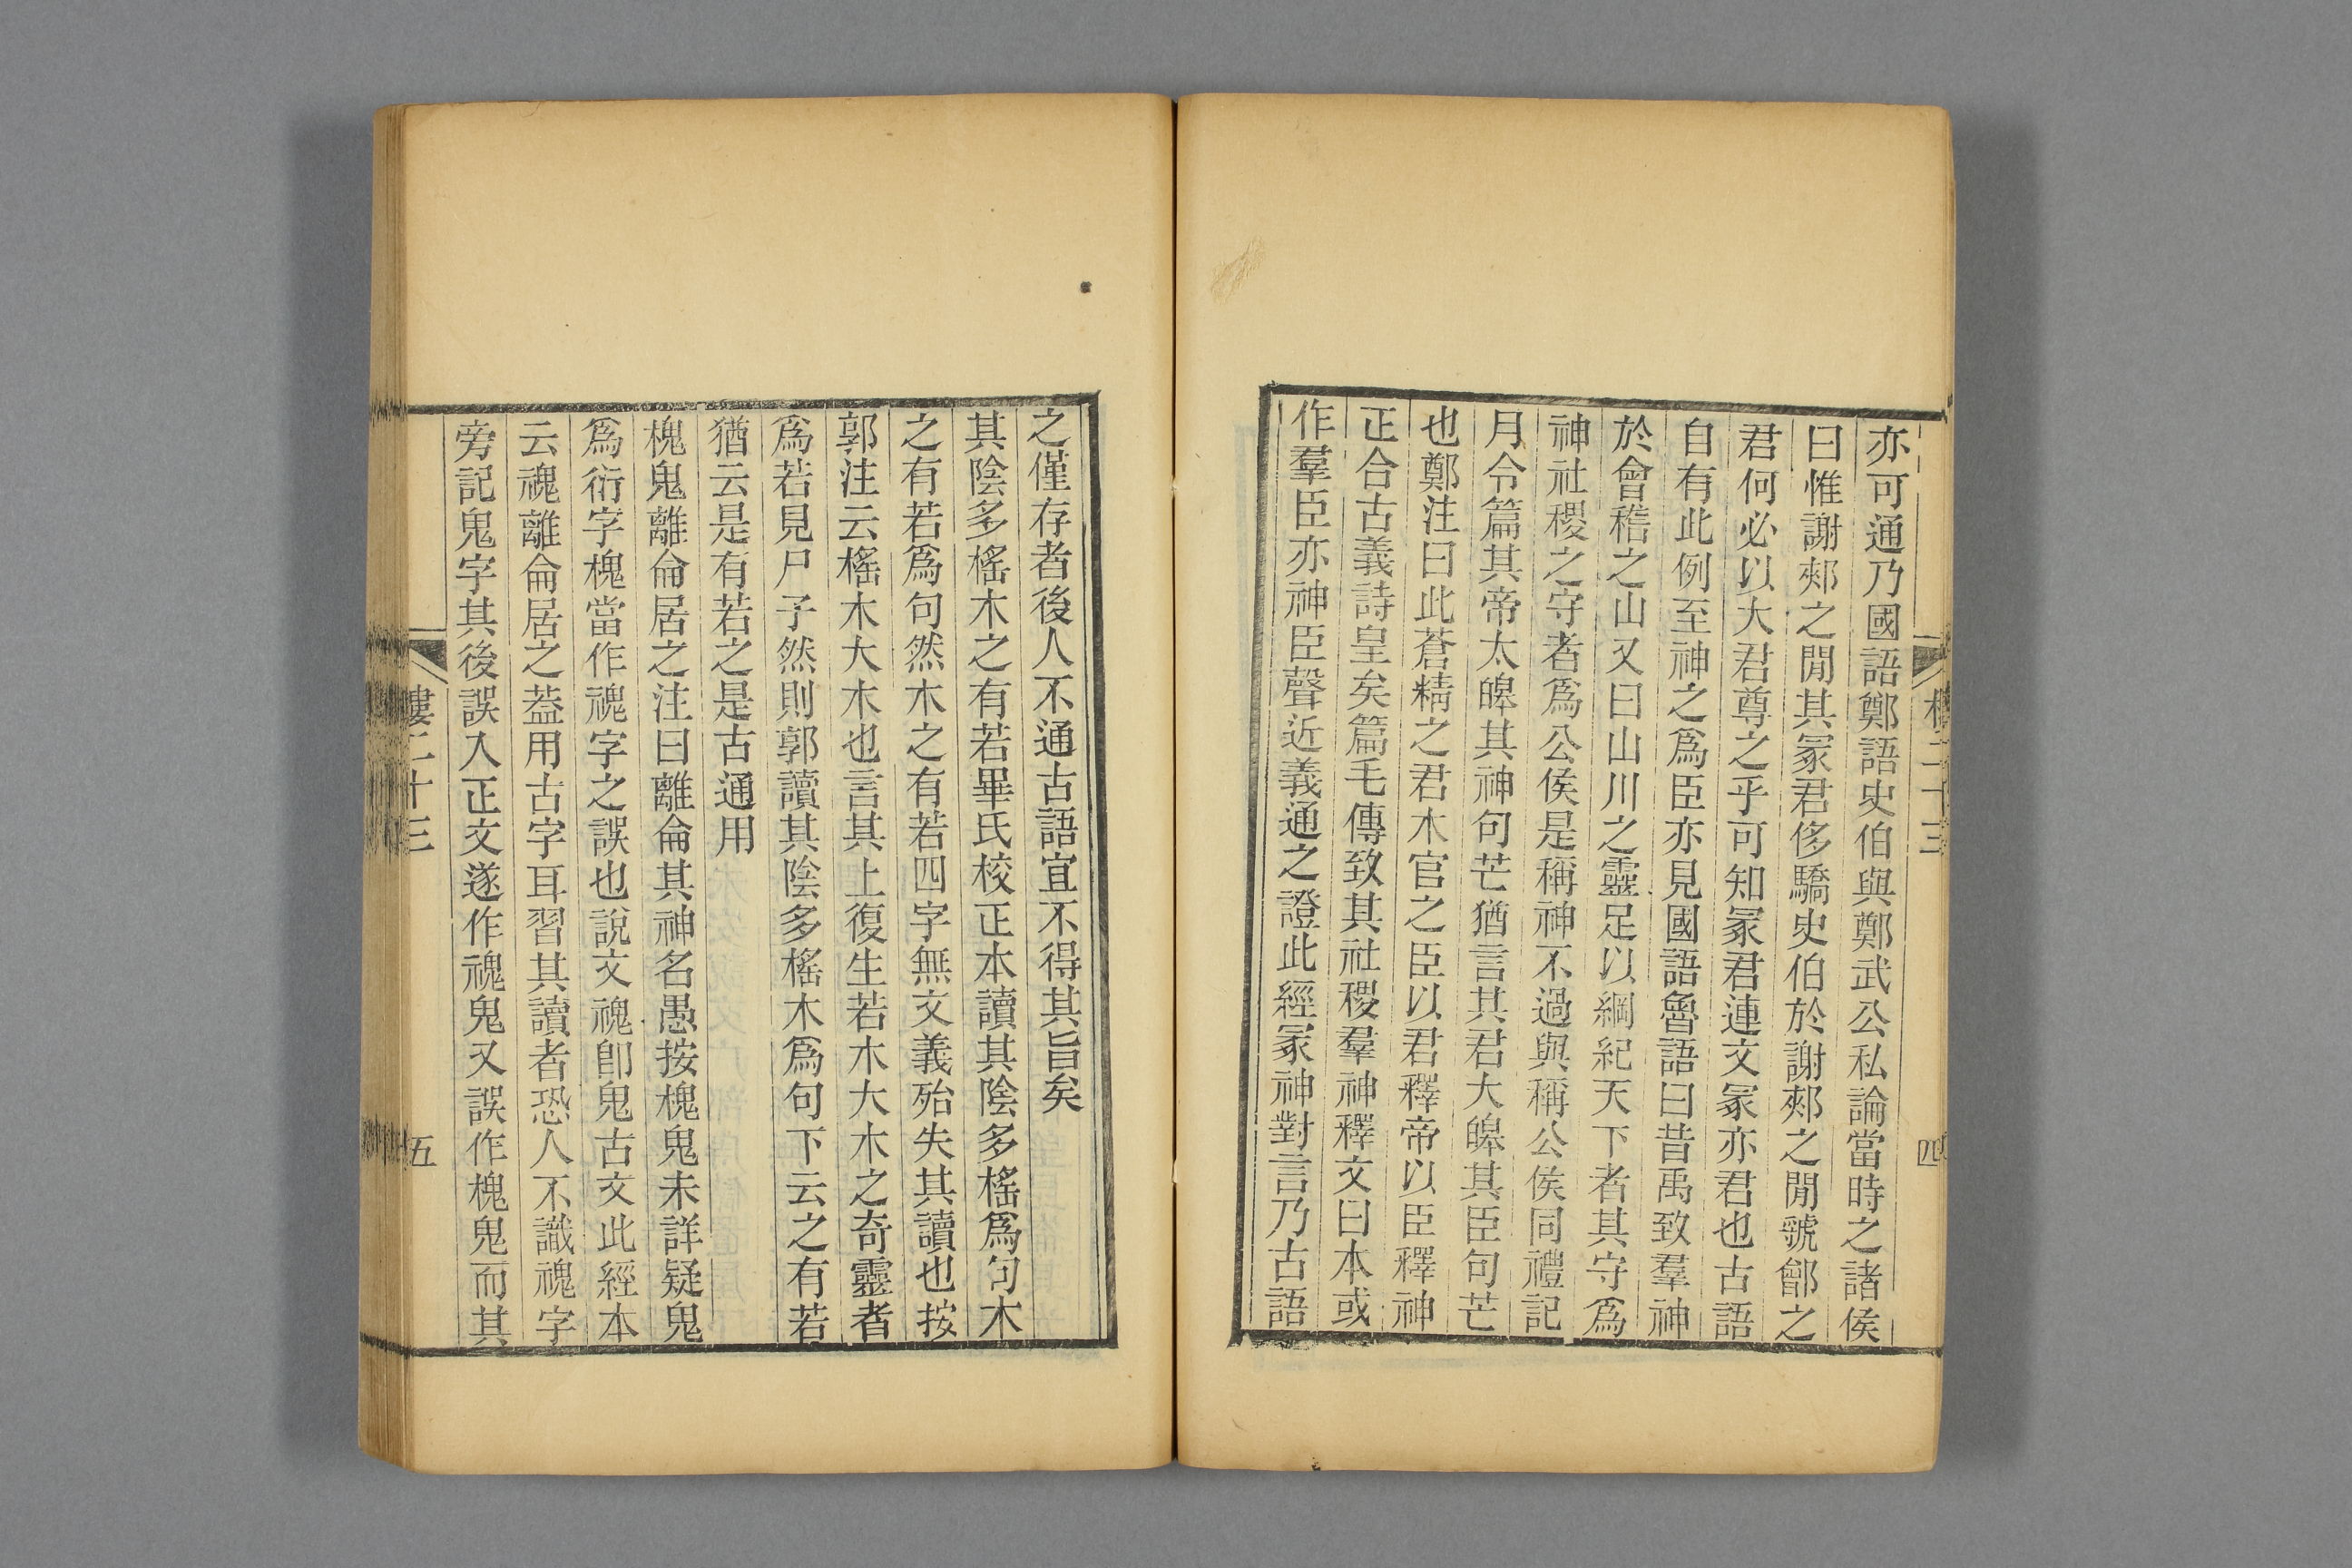 亦可通乃國語鄭語史伯與鄭武公私論當時之諸侯
曰惟謝郟之閒其冢君侈驕史伯於謝郟之閒虢鄶之
君何必以大君尊之乎可知冢君連文冢亦君也古語
自有此例至神之爲臣亦見國語魯語曰昔禹致羣神
於會稽之山又曰山川之靈足以綱紀天下者其守爲
神社稷之守者爲公侯是稱神不過與稱公侯同禮記
月令篇其帝太皞其神句芒猶言其君大皞其臣句芒
也鄭注曰此蒼精之君木官之臣以君釋帝以臣釋神
正合古義詩皇矣篇毛傳致其社稷羣神釋文曰本或
作羣臣亦神臣聲近義通之證此經冢神對言乃古語
二十三
四
之僅存者後人不通古語宜不得其旨矣
其陰多榣木之有若畢氏校正本讀其陰多榣爲句木
之有若爲句然木之有若四字無文義殆失其讀也按
郭注云榣木大木也言其上復生若木大木之奇靈者
爲若見尸子然則郭讀其陰多榣木爲句下云之有若
猶云是有若之是古通用
槐鬼離侖居之注曰離侖其神名愚按槐鬼未詳疑鬼
爲衍字槐當作䰠字之誤也說文䰠卽鬼古文此經本
云䰠離侖居之葢用古字耳習其讀者恐人不識䰠字
旁記鬼字其後誤入正文遂作䰠鬼又誤作槐鬼而其
樓二十三
五